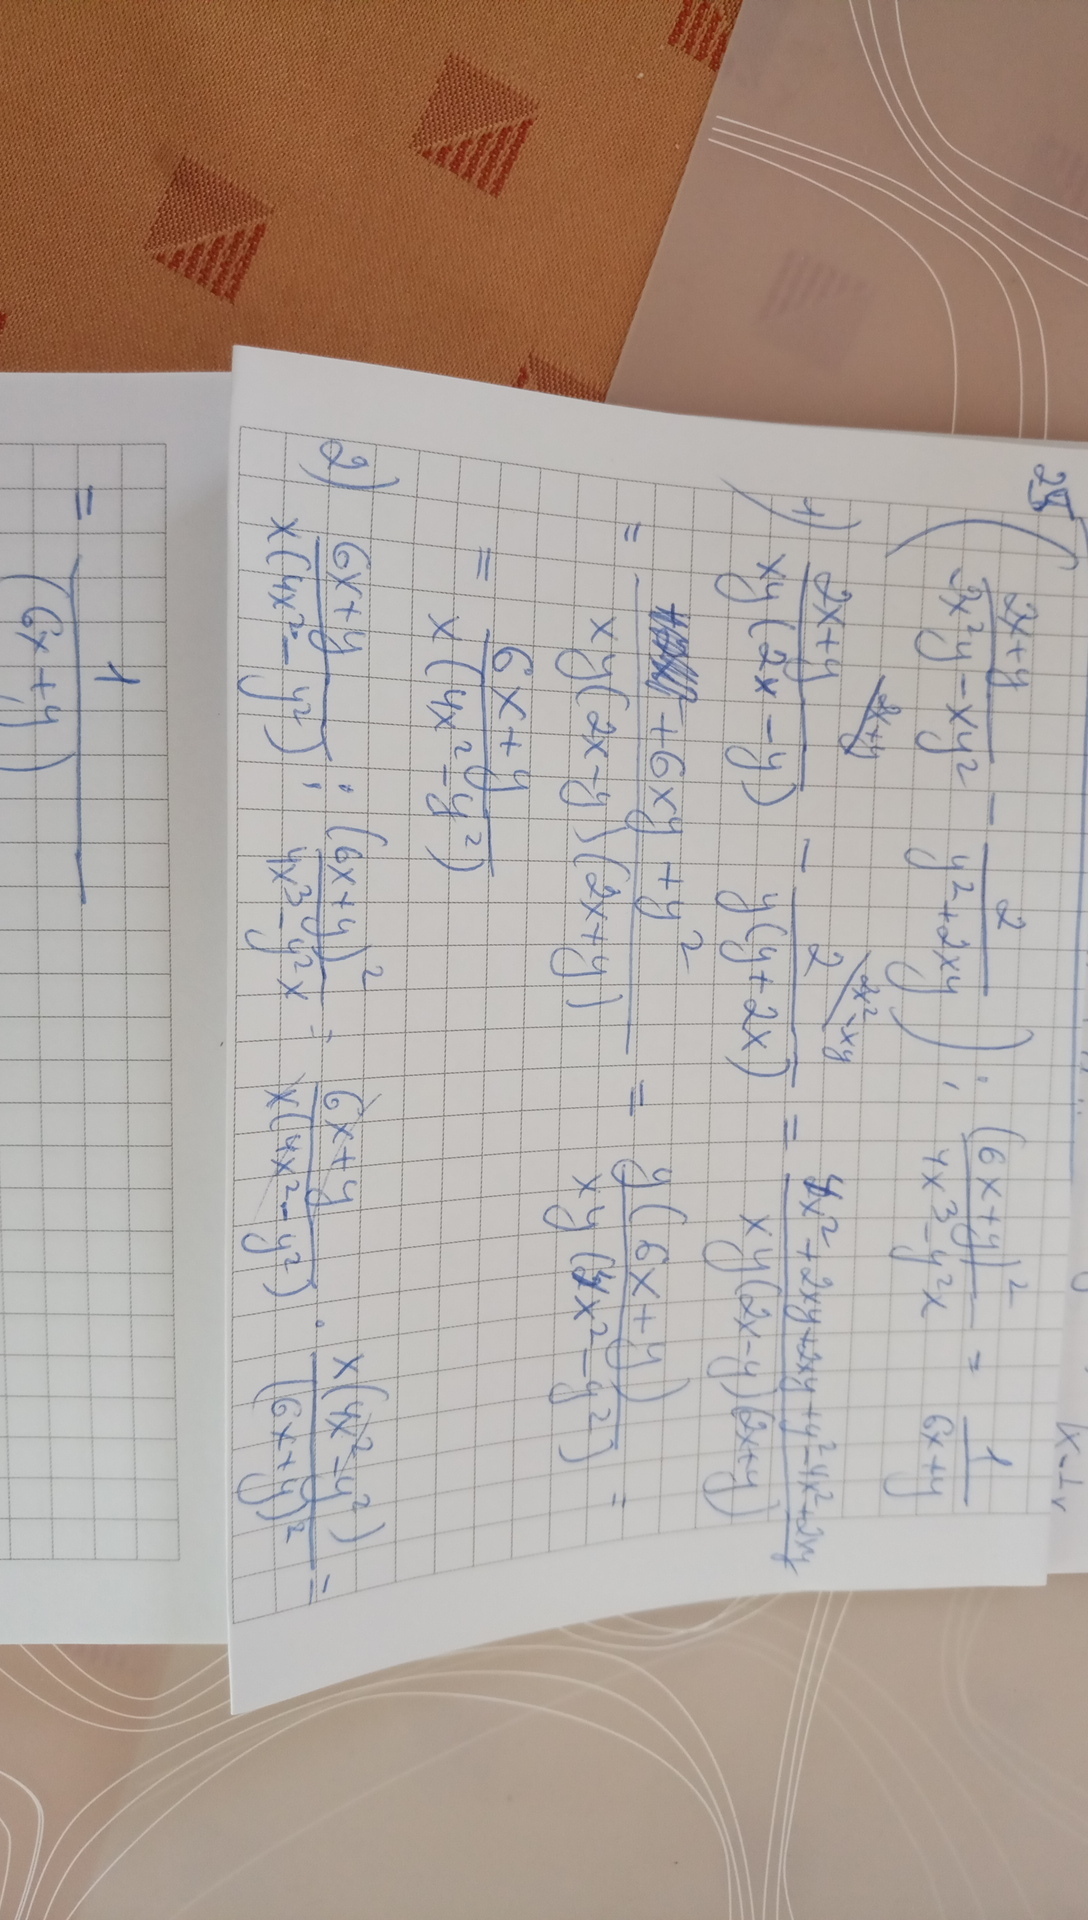 25 ( (2x+y)/(2x²y-xy²) - 2/(y²+2xy) ) : (6x+y)²/(4x³-y²x) = 1/(6x+y)
1) (2x+y)/(xy(2x-y)) \2x+y - 2/(y(y+2x)) \2x²-xy = (4x²+2xy+2xy+y²-4x²+2xy)/(xy(2x-y)(2x+y))
= (+6xy+y²)/(xy(2x-y)(2x+y)) = y(6x+y)/(xy(4x²-y²)) =
= (6x+y)/(x(4x²-y²))
2) (6x+y)/(x(4x²-y²)) : (6x+y)²/(4x³-y²x) = (6x+y)/(x(4x²-y²)) · x(4x²-y²)/(6x+y)² =
= 1/(6x+y)